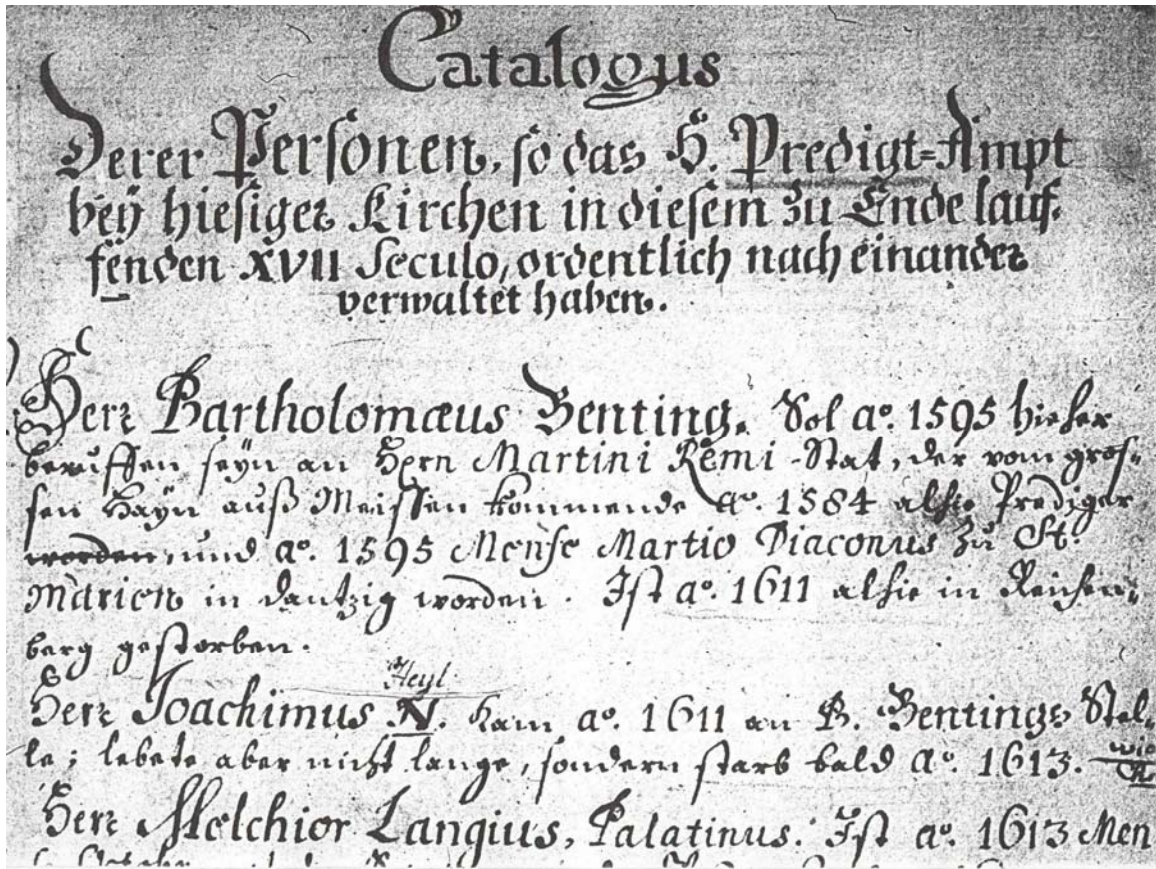 Catalogus
Derer Personen, so das H. Predigt-Ampt
beÿ hiesiger Kirchen in diesem zu Ende lauf-
fenden XVII Seculo, ordentlich nach einander
verwaltet haben.
Herr Bartholomæus Benting. Sol aº. 1595 hieher
beruffen seyn an Hern Martini Remi-Stat, der vom gros-
sen Hayn auß Meissen kommende Aº. 1584 alhie Prediger
worden, und aº. 1595 Mense Martio Diaconus zu St.
Marien in Dantzig worden. Ist aº. 1611 alhie in Reichen-
berg gestorben.
Heyl
Herr Joachimus N. Kam aº. 1611 an B. Bentings Stel-
le; lebete aber nicht lange, sondern starb bald Aº. 1613.
Herr Melchior Langius, Palatinus. Ist aº. 1613 Men